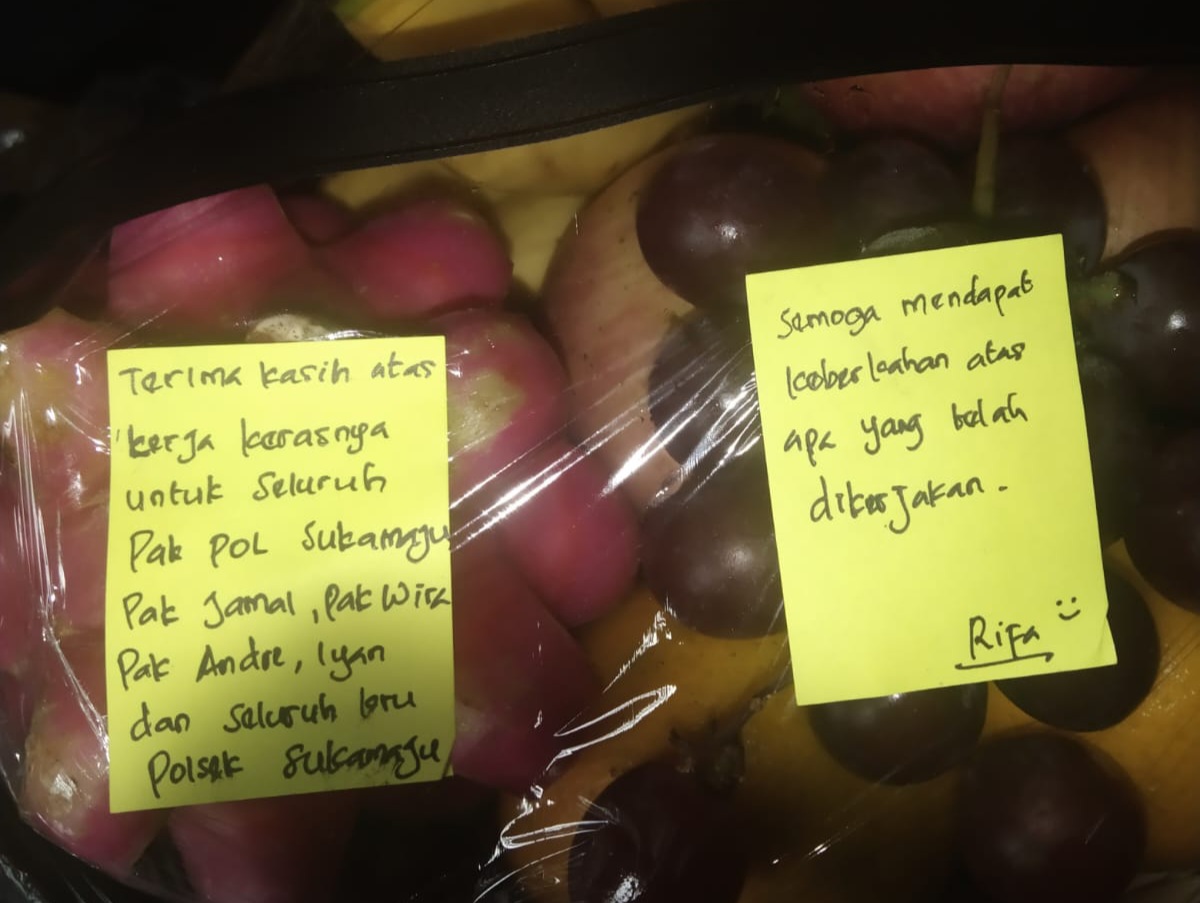 Terima kasih atas
kerja kerasnya
untuk seluruh
Pak POL Sukamaju
Pak Jamal, Pak Wira
Pak Andre, Iyan
dan seluruh kru
Polsek Sukamaju
Semoga mendapat
keberkahan atas
apa yang telah
dikerjakan.
Rifa :)